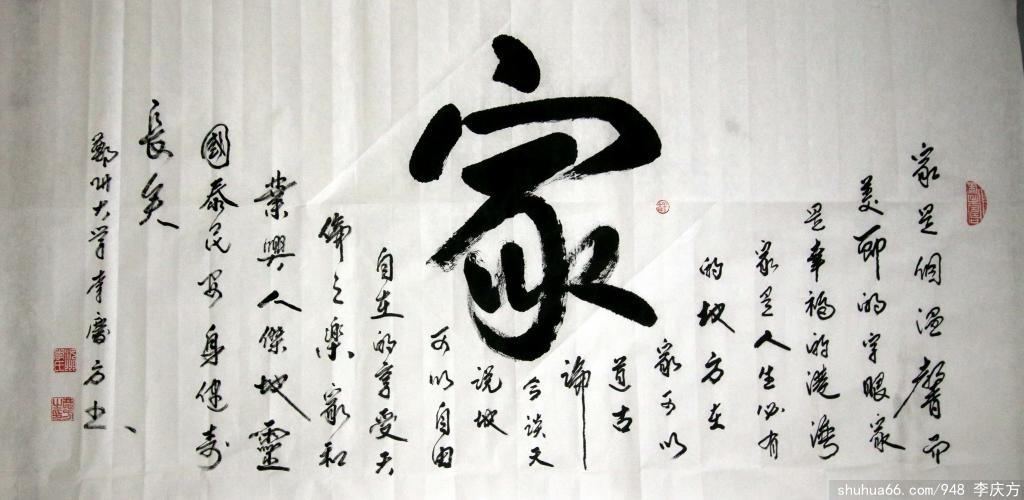 家
家是個温馨而
美丽的字眼家
是幸福的港湾
家是人生必有
的地方在
家可以
道古
論
今谈天
说地
可以自由
自在的享受天
倫之樂家和
業興人傑地靈
國泰民安身健寿
長矣
鄭州大学李慶方书
shuhua66.com/948 李庆方